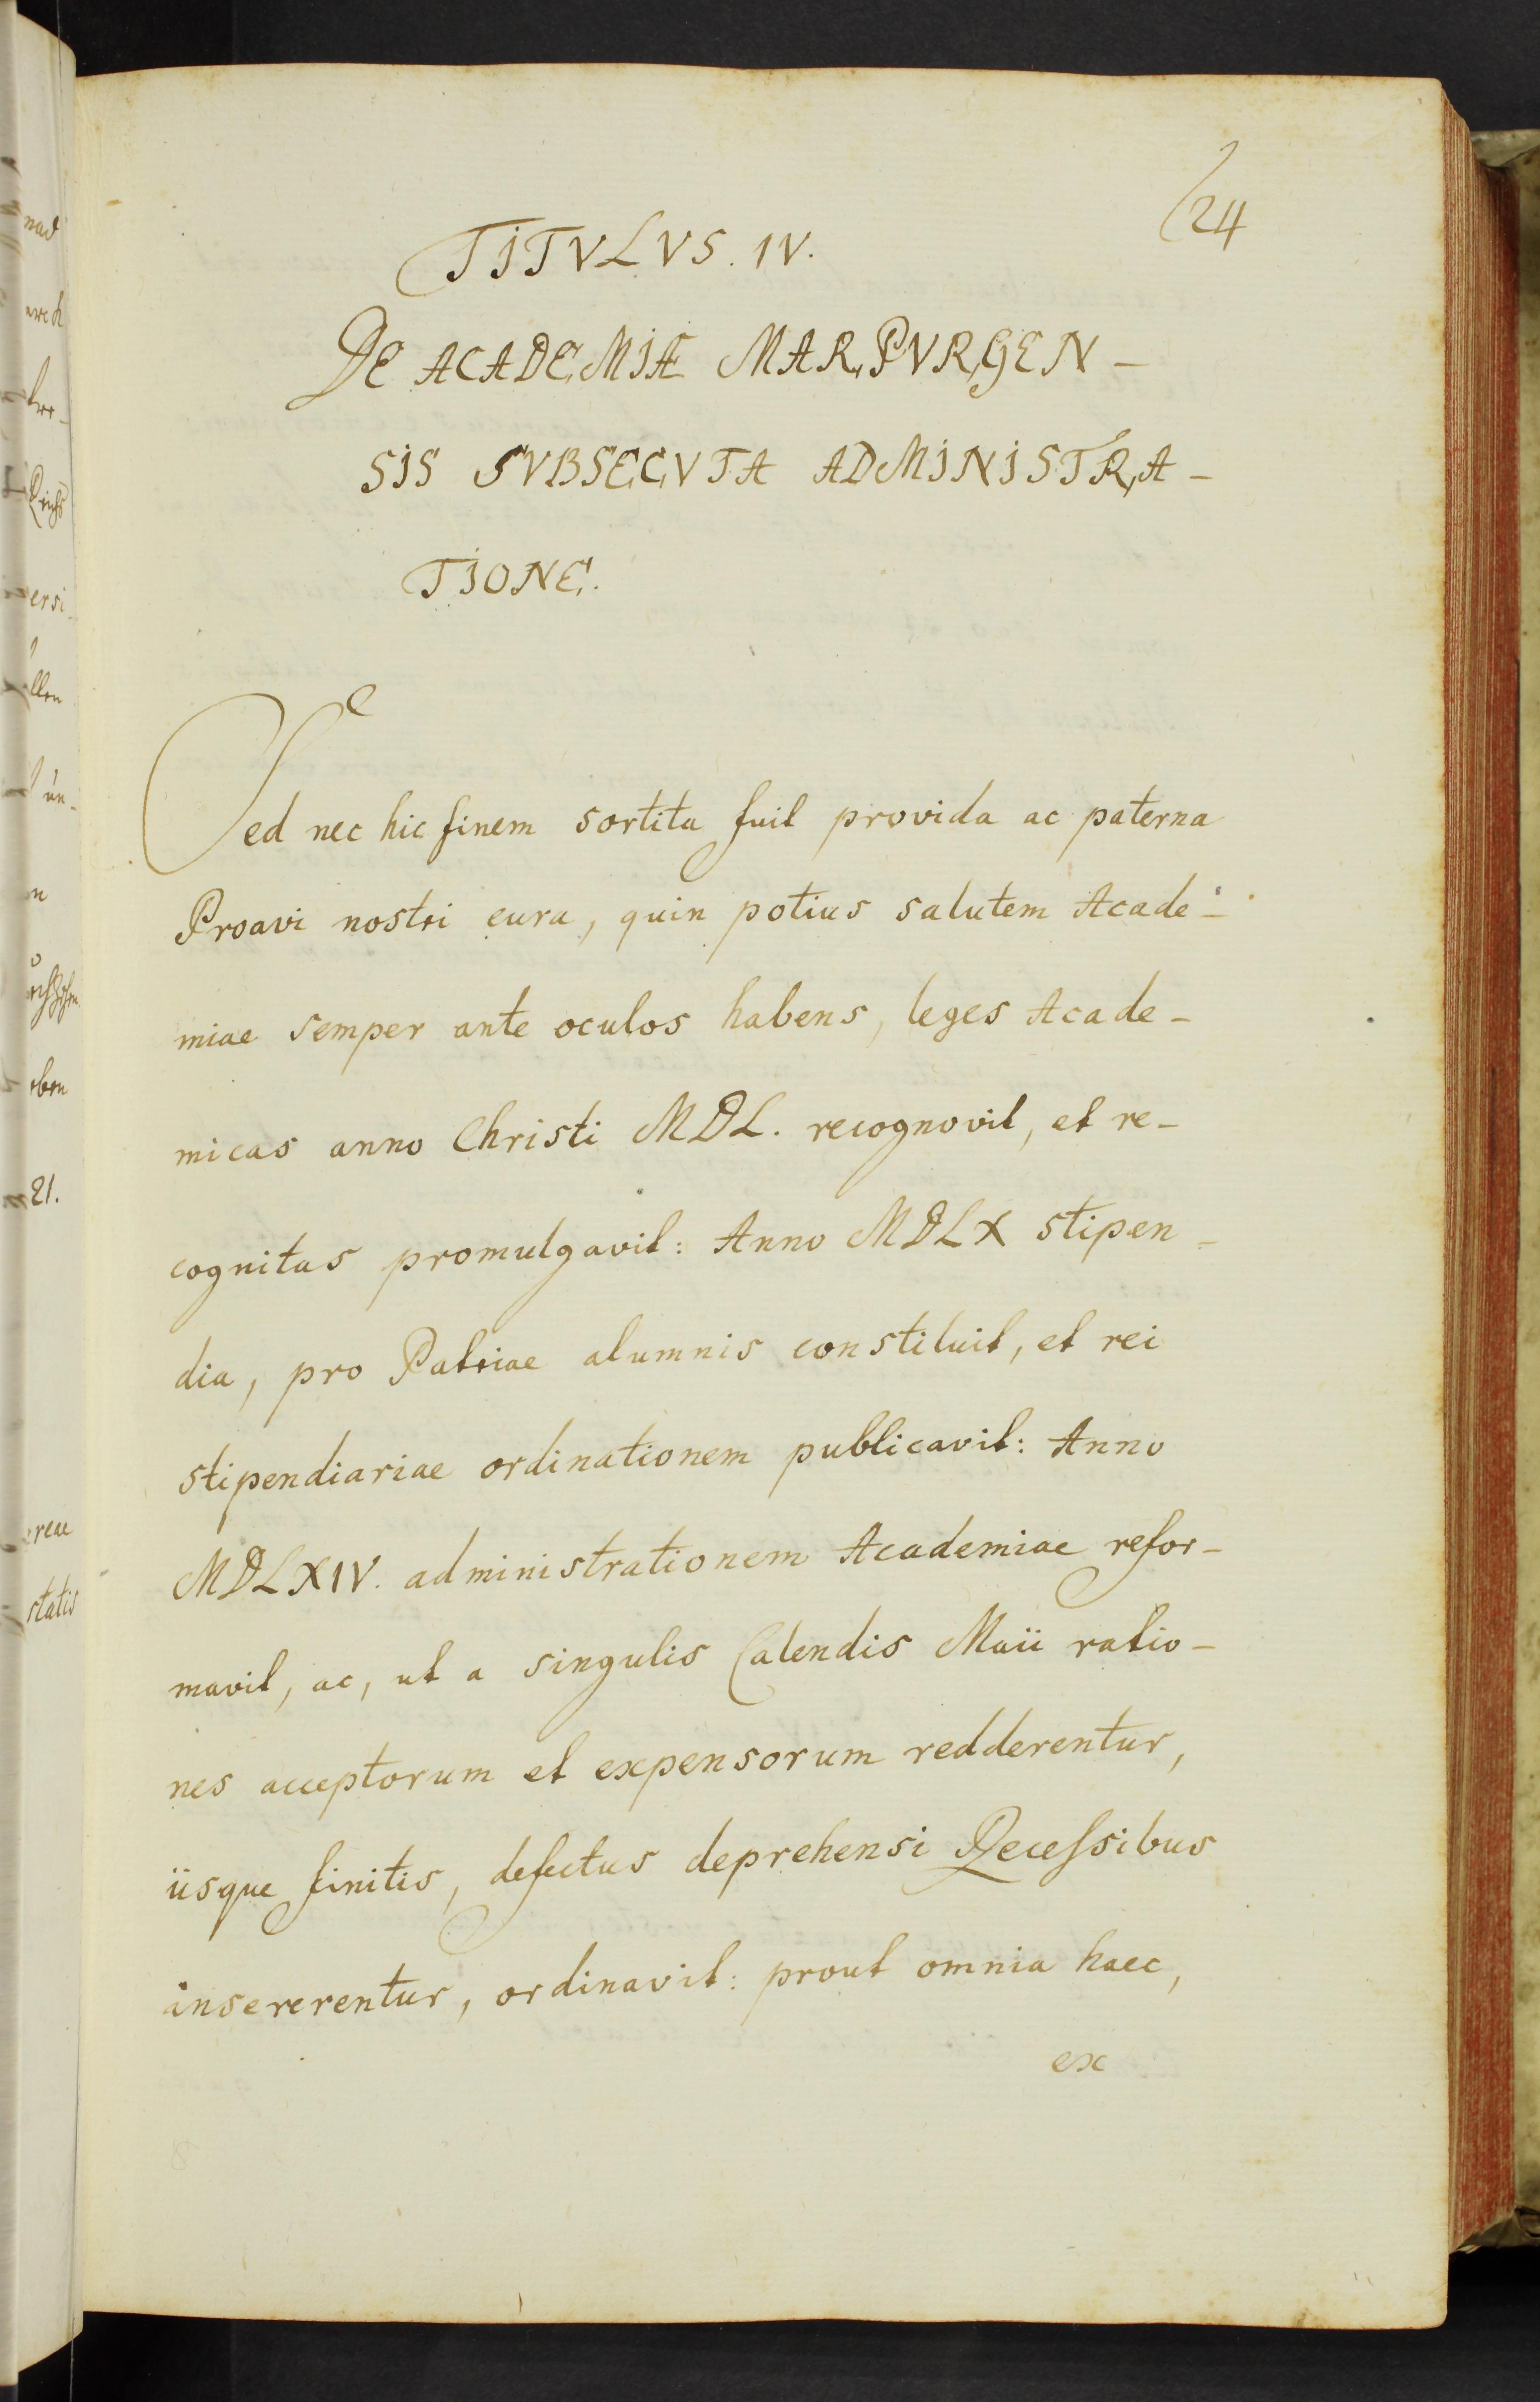 24
TITVLVS. IV.
DE ACADEMIÆ MARPVRGEN-
SIS SVBSECVTA ADMINISTRA-
TIONE.
Sed nec hic finem sortita fuit provida ac paterna
Proavi nostri cura, quin potius salutem Acade-
miae semper ante oculos habens, leges Acade-
micas anno Christi MDL. recognovit, et re-
cognitas promulgavit: Anno MDLX stipen-
dia, pro Patriae alumnis constituit, et rei
stipendiariae ordinationem publicavit: Anno
MDLXIV. administrationem Academiae refor-
mavit, ac, ut a singulis Calendis Maii ratio-
nes acceptorum et expensorum redderentur,
iisque finitis, defectus deprehensi Recessibus
insererentur, ordinavit: prout omnia haec,
ex